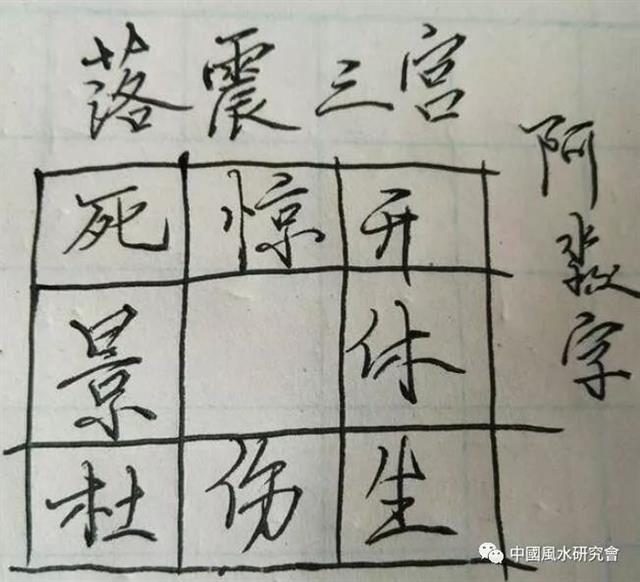 落震三宫
死 惊 开
景 休
杜 伤 生
阿淼字
中國風水研究會